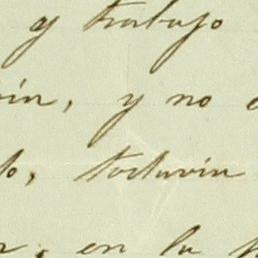 y trabajo
y no
todavia
en la